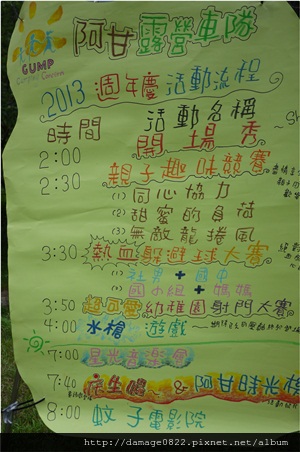 GUMP
阿甘露營車隊
2013 週年慶活動流程
時間 活動名稱
2:00 開場秀
2:30 親子趣味競賽
(1) 同心協力
(2) 甜蜜的負荷
(3) 無敵龍捲風
3:30 熱血躲避球大賽
(1) 社男+國中
(2) 國小組+媽媽
3:50 超可愛幼稚園射門大賽
4:00 水槍遊戲
7:00 星光音樂會
7:40 慶生唱~&阿甘時光
8:00 蚊子電影院
http://damage0822.pixnet.net/album